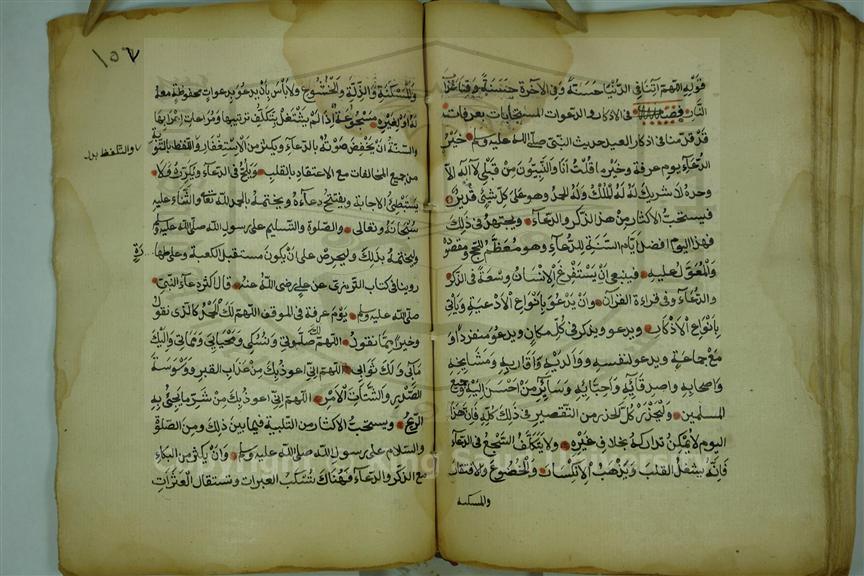 قوله اللهم آتنا في الدنيا حسنة وفي الاخرة حسنة وقنا عذاب
النار فصل في الاذكار والدعوات المستحبات بعرفات
قد قدمنا في اذكار العيد حديث النبي صلى الله عليه وسلم خير
الدعاء يوم عرفة وخير ما قلت انا والنبيون من قبلي لا اله الا الله
وحده لا شريك له له الملك وله الحمد وهو على كل شئ قدير
فيستحب الاكثار من هذا الذكر والدعاء ويجتهد في ذلك
فهذا اليوم افضل ايام السنة للدعاء وهو معظم الحج ومقصوده
والمعول عليه فينبغي ان يستفرغ الانسان وسعه في الذكر
والدعاء وفي قراءة القران وان يدعو بانواع الادعية وياتي
بانواع الاذكار ويدعو ويذكر في كل مكان ويدعو منفردا او
مع جماعة ويدعو لنفسه ووالديه واقاربه ومشايخه
واصحابه واصدقائه واحبائه وسائر من احسن اليه وجميع
المسلمين وليحذر كل الحذر من التقصير في ذلك كله فان هذا
اليوم لا يمكن تداركه بخلاف غيره ولا يتكلف السجع في الدعاء
فانه يشغل القلب ويذهب الانكسار والخضوع والافتقار
والمسكنة
١٥٧
والمسكنة والذلة والخشوع ولا باس بان يدعو بدعوات محفوظة معه
له او لغيره مسجوعة اذا لم يشتغل بتكلف ترتيبها ومراعات اعرابها
والسنة ان يخفض صوته بالدعاء ويكثر من الاستغفار والتلفظ بالتوبة
والتلفظ بدل
من جميع المخالفات مع الاعتقاد بالقلب ويلح في الدعاء ويكرره ولا
يستبطئ الاجابة ويفتتح دعاءه ويختمه بالحمد لله تعالى والثناء عليه
سبحانه وتعالى والصلوة والتسليم على رسول الله صلى الله عليه وسلم
وليختمه بذلك وليحرص على ان يكون مستقبل الكعبة وعلى طهارة
روينا في كتاب الترمذي عن علي رضى الله عنه قال اكثر دعاء النبي
صلى الله عليه وسلم يوم عرفة في الموقف اللهم لك الحمد كالذي نقول
وخيرا مما نقول اللهم لك صلوتي ونسكي ومحياي ومماتي واليك
مآبي ولك ثوابي اللهم اني اعوذ بك من عذاب القبر ووسوسة
الصدر والشتات الامر اللهم اني اعوذ بك من شر ما يجئ به
الريح ويستحب الاكثار من التلبية فيما بين ذلك ومن الصلوة
والسلام على رسول الله صلى الله عليه وسلم وان يكثر من البكاء
مع الذكر والدعاء فهناك تسكب العبرات وتستقال العثرات